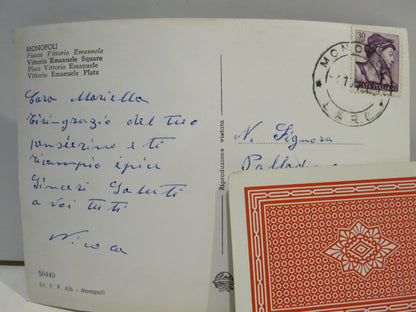 MONOPOLI
Piazza Vittorio Emanuele
Vittorio Emanuele Square
Place Vittorio Emanuele
Vittorio Emanuele Platz
Cara Mariella
Ti ringrazio del tuo
pensierino e ti
ricambio i più
Sinceri Saluti
a voi tutti
50440
Ed. F. P. Alò - Monopoli
Riproduzione vietata
30
MONOPOLI
N. Signora